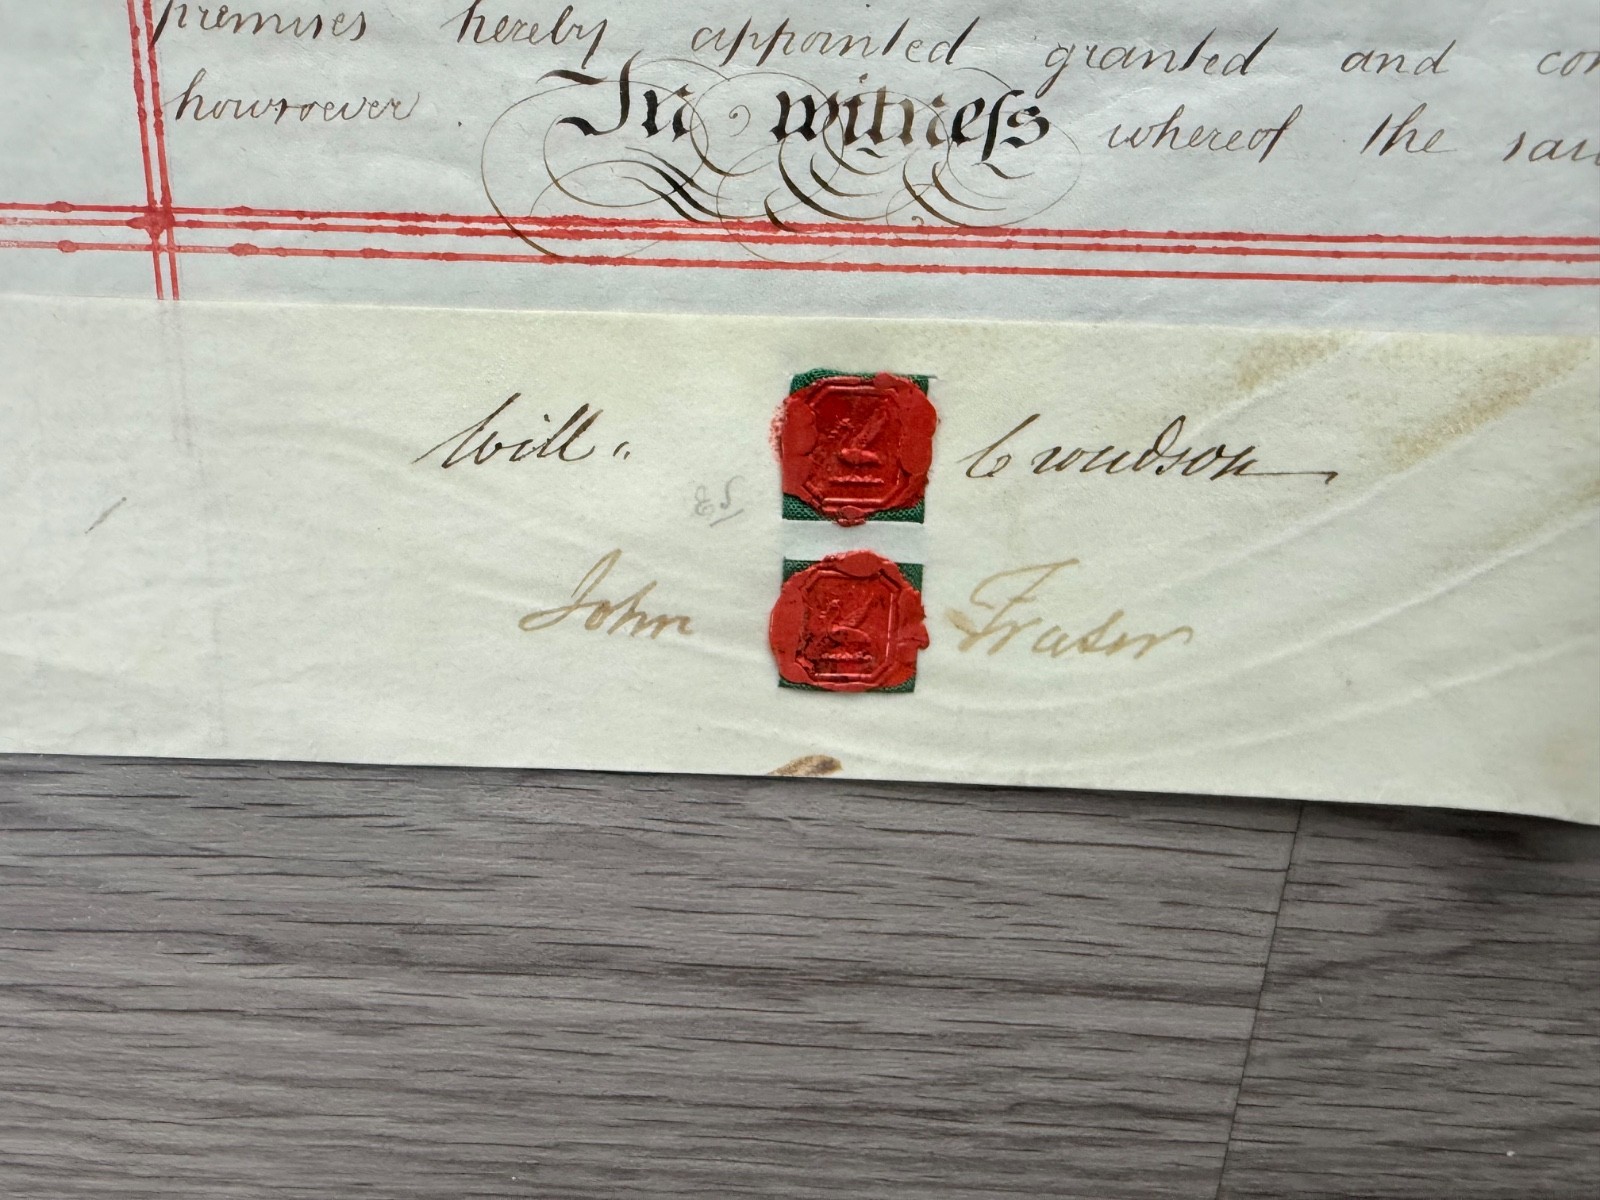 premises hereby appointed granted and con
howsoever. In witneſs whereof the sai
Will. Crewdson
John Fraser